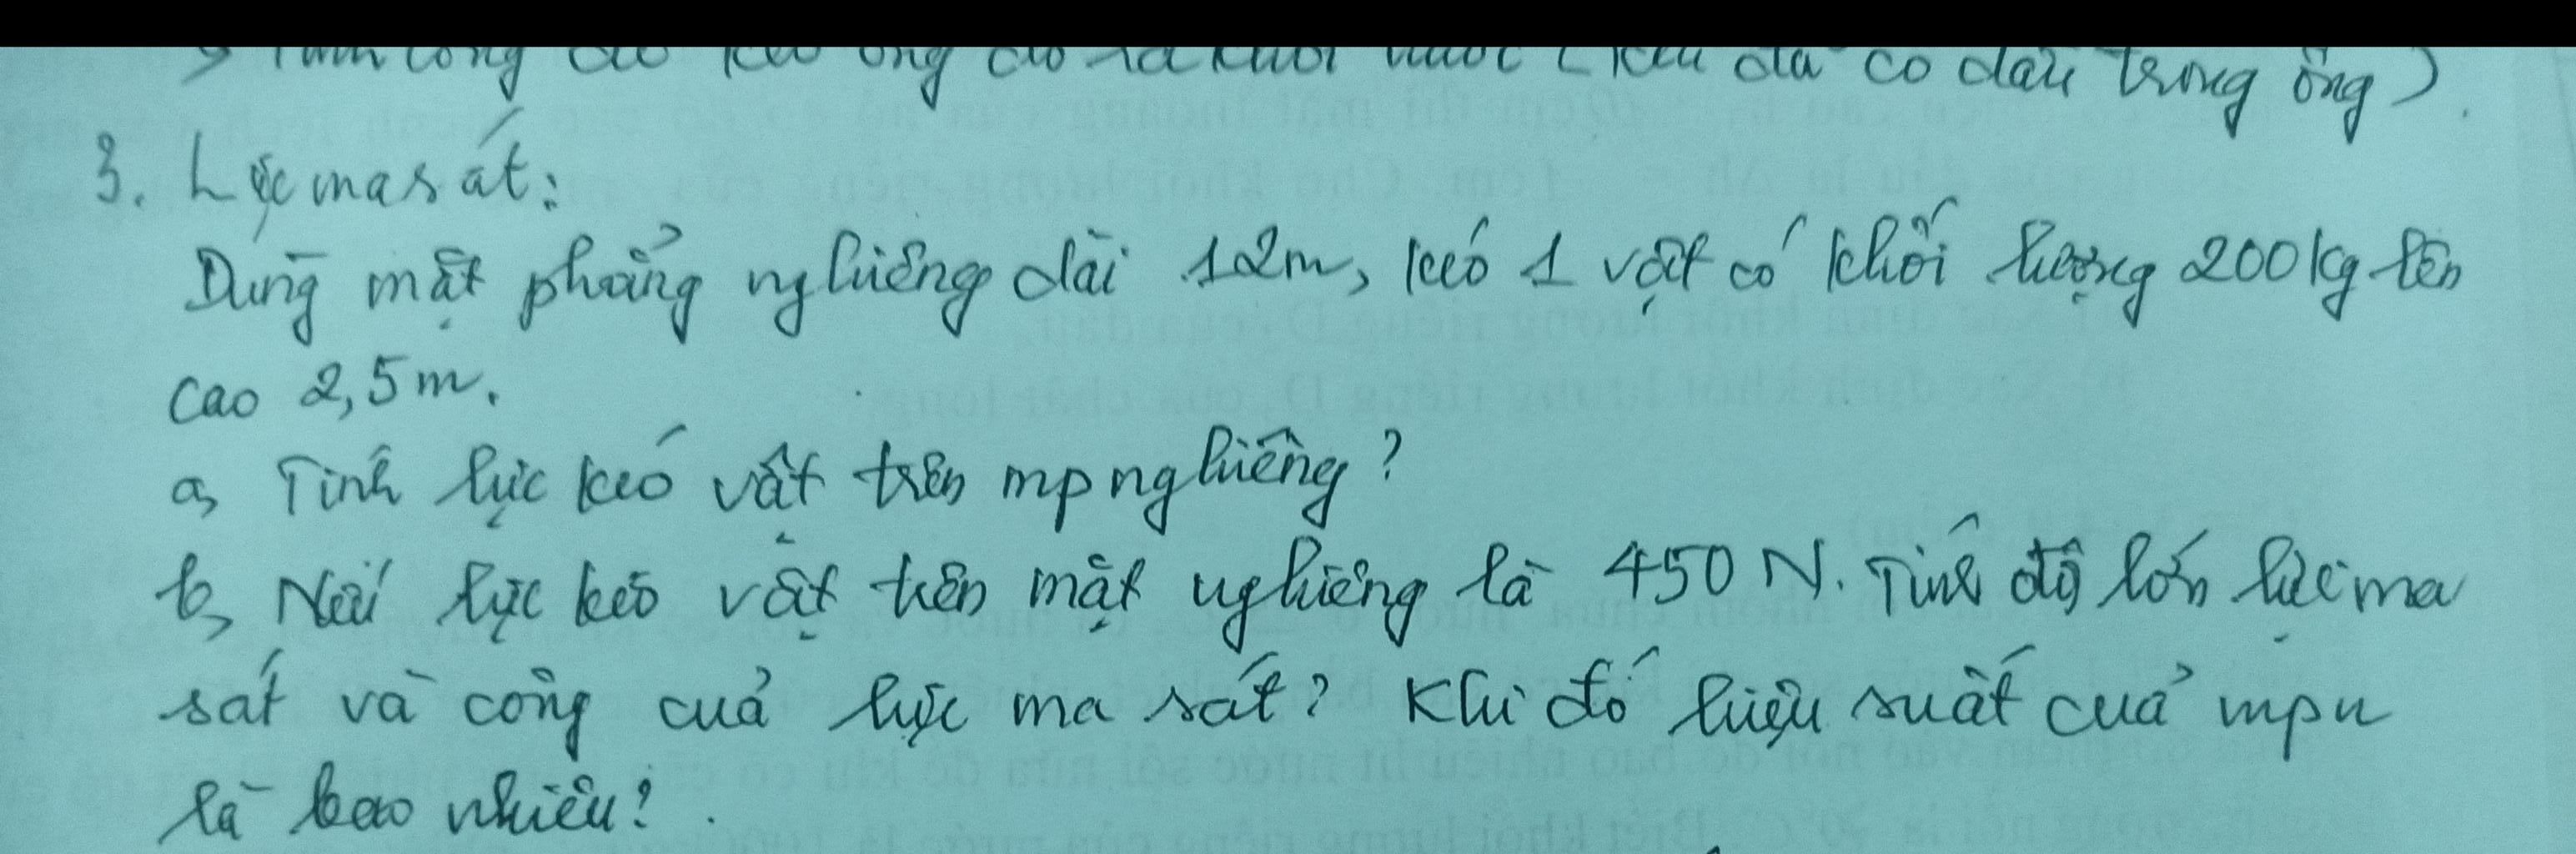 Tính công để kéo ống đó ra khỏi nước (khi đã có dầu trong ống).
3. Lực ma sát:
Dùng mặt phẳng nghiêng dài 12m, kéo 1 vật có khối lượng 200kg lên
cao 2,5m.
a, Tính lực kéo vật trên mp nghiêng?
b, Nếu lực kéo vật trên mặt nghiêng là 450 N. Tính độ lớn lực ma
sát và công của lực ma sát? Khi đó hiệu suất của mpn
là bao nhiêu?